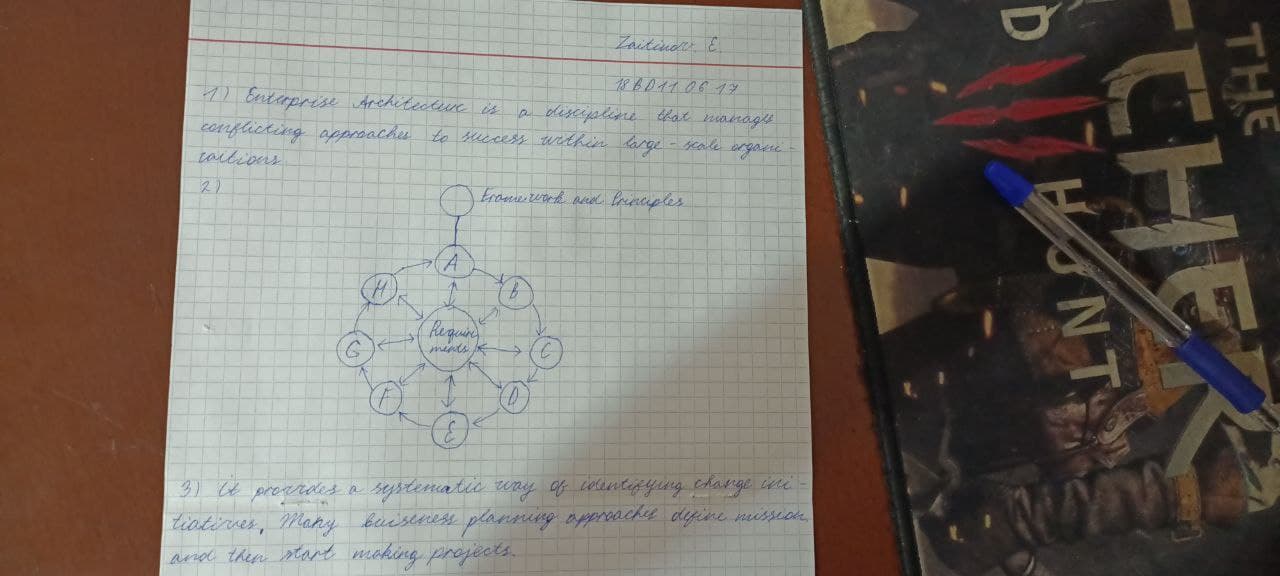 Zaitinov E.
18BD110617
1) Enterprise Architecture is a discipline that manages
conflicting approaches to success within large-scale organi-
zations
2)
Framework and Principles
A
B
C
D
E
F
G
H
Requir
ments
3) It provides a systematic way of identifying change ini-
tiatives. Many buiseness planning approaches define mission
and then start making projects.
THE
TCHER
D
HUNT